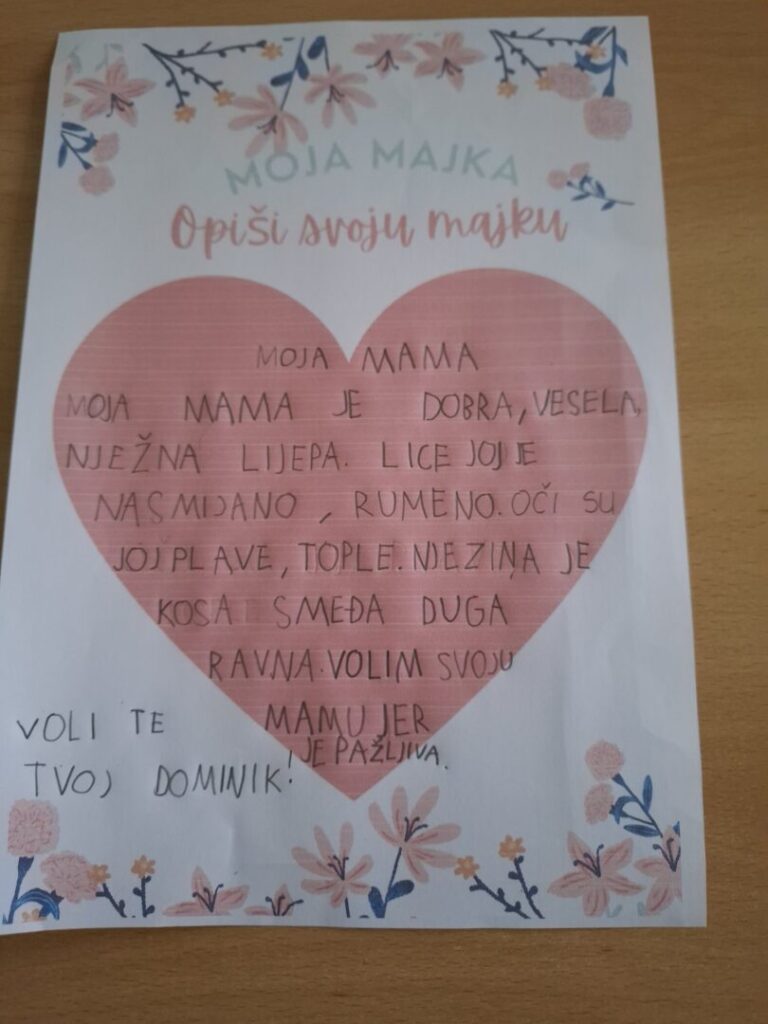 MOJA MAJKA
Opiši svoju majku
MOJA MAMA
MOJA MAMA JE DOBRA, VESELA,
NJEŽNA LIJEPA. LICE JOJ JE
NASMIJANO, RUMENO. OČI SU
JOJ PLAVE, TOPLE. NJEZINA JE
KOSA SMEĐA DUGA
RAVNA. VOLIM SVOJU
MAMU JER
JE PAŽLJIVA.
VOLI TE
TVOJ DOMINIK!